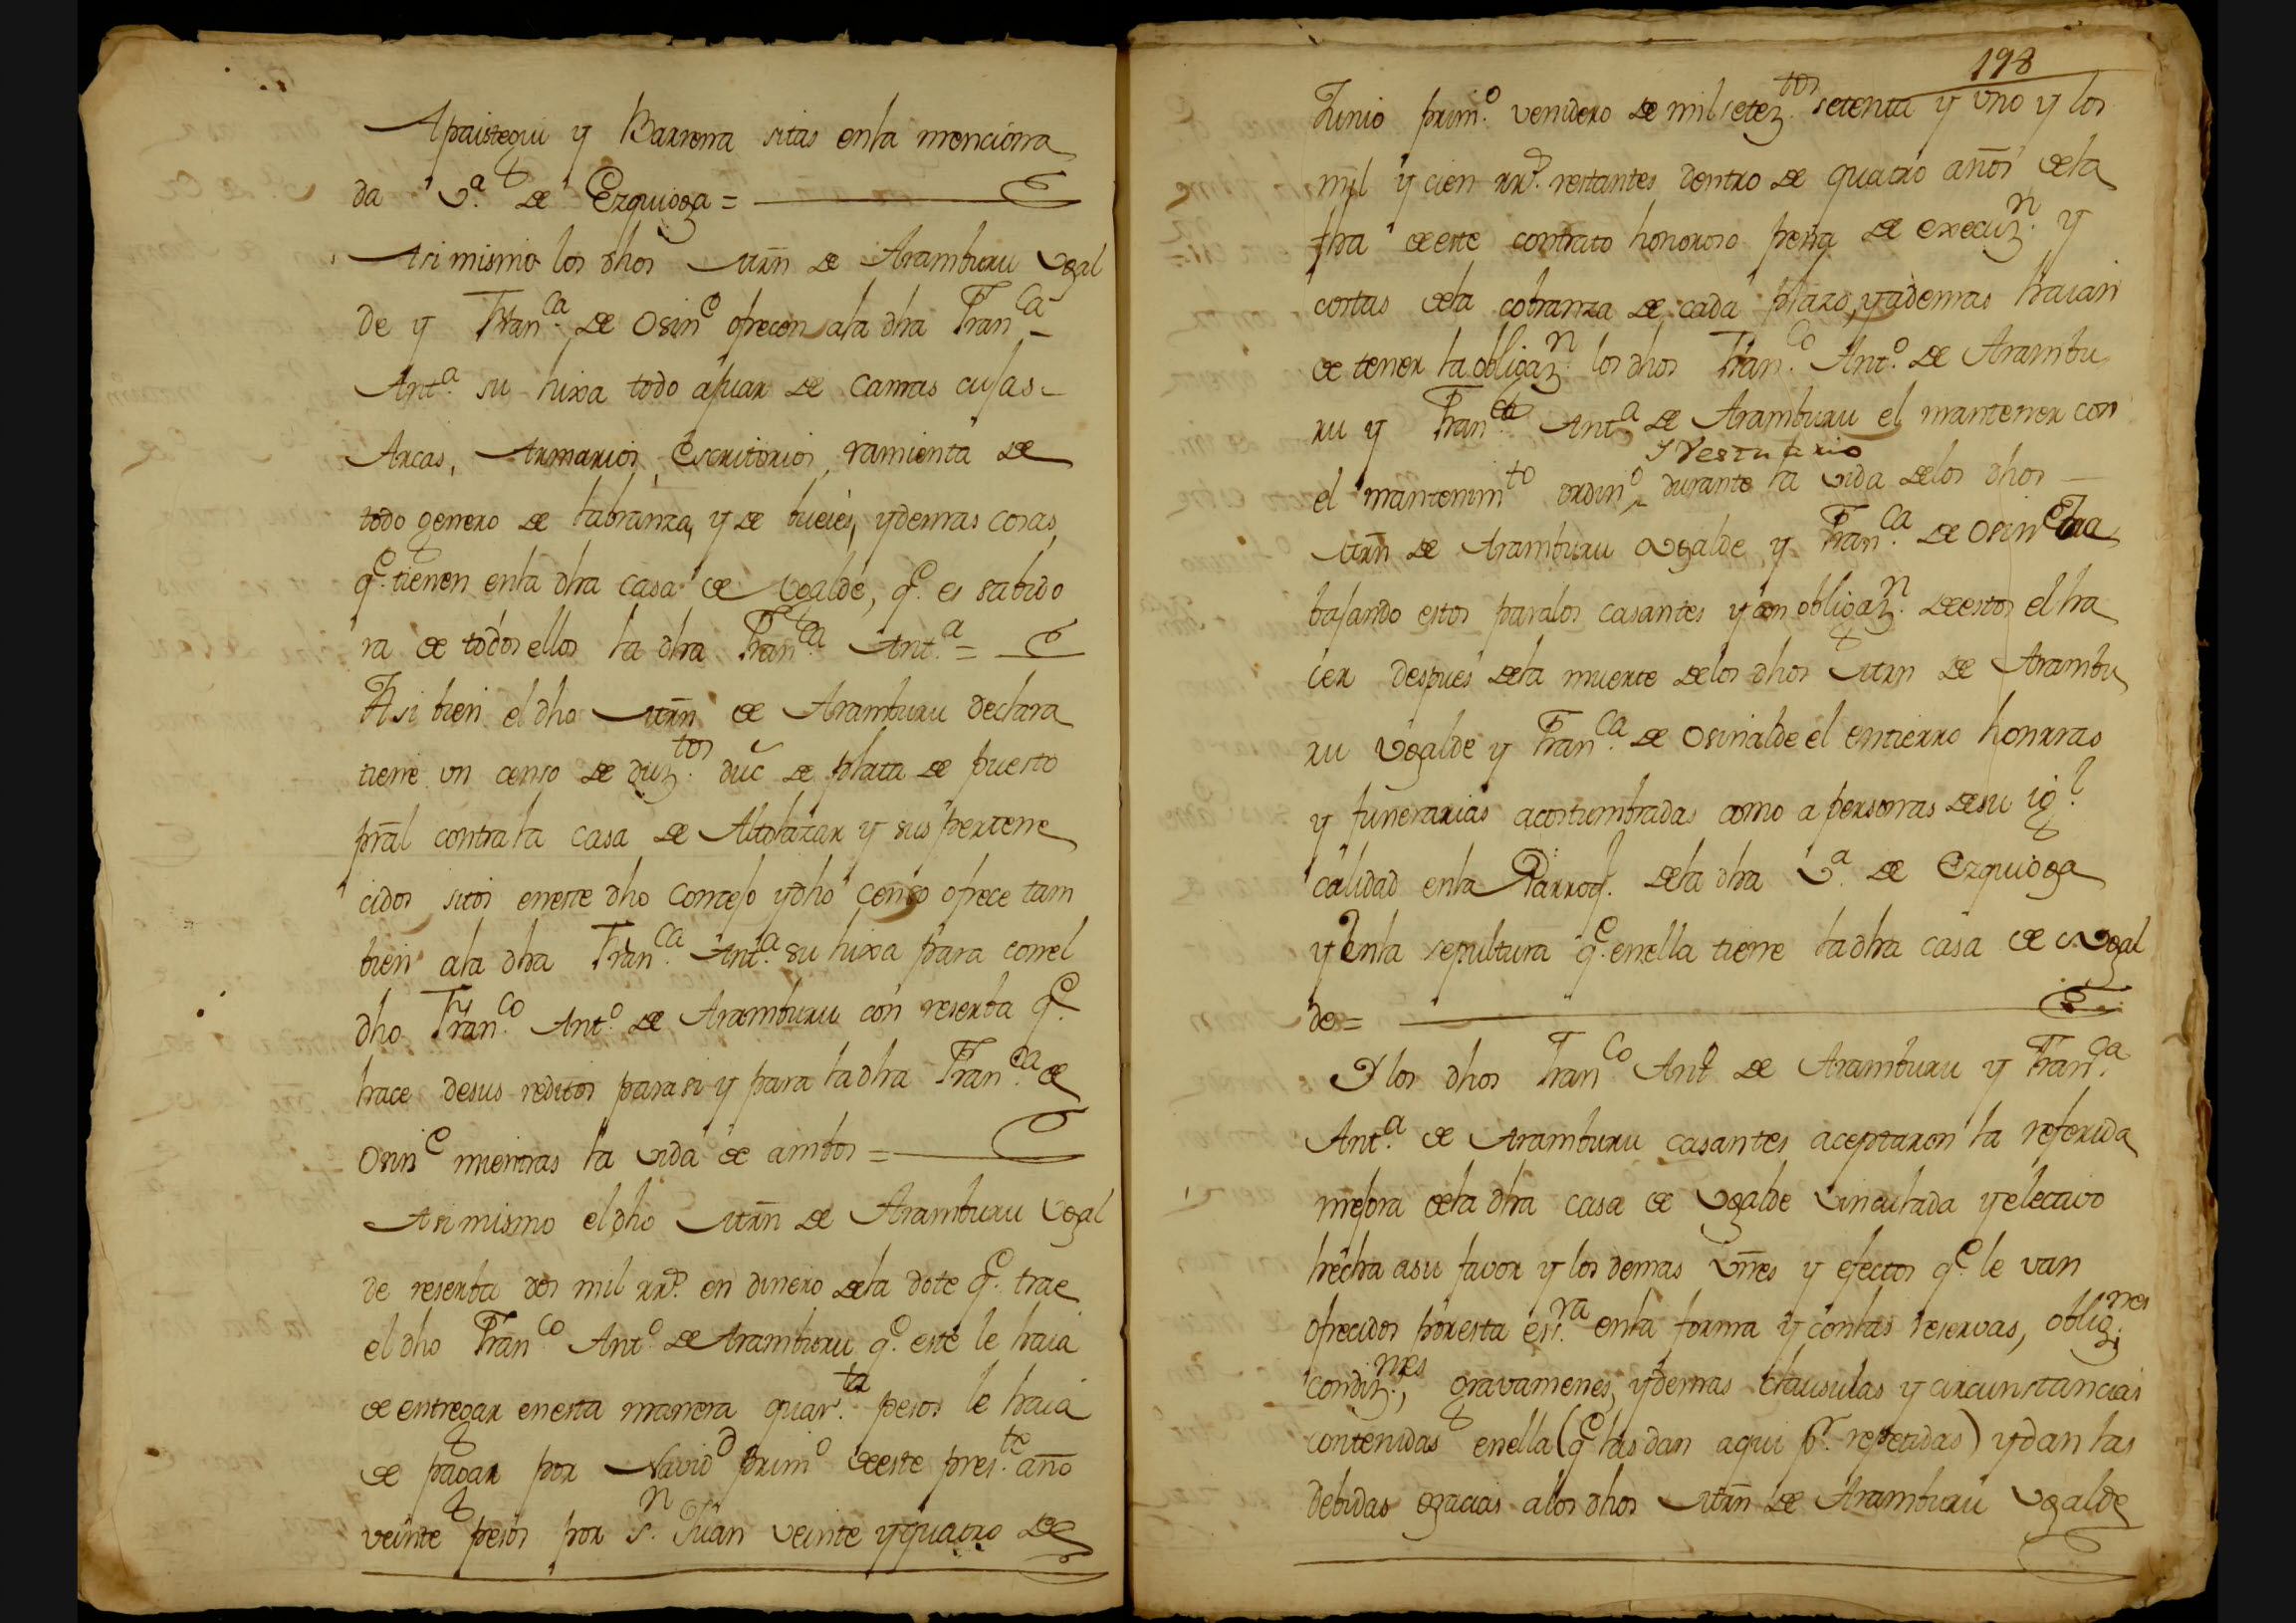 Apaistegui y Barrena sitas enla menciona
da V.ª de Ezquioga =
Asi mismo los dhos Mrn de Aramburu Ugal
de y Fran.ca de Osin.e ofrecen ala dha Fran.ca
Ant.ª su hixa todo ajuar de camas cujas
Arcas, Armarios, Escritorios, ramienta de
todo genero de labranza, y de bueies, ydemas cosas,
q.e tienen enla dha casa de Ugalde, q.e es sabido
ra de todos ellos la dha Fran.ca Ant.ª =
Asi bien el dho Mrn de Aramburu declara
tiene un censo de duz.tos duc de plata de puesto
pral contra la casa de Altolazar y sus pertene
cidos sitos eneste dho Concejo ydho censo ofrece tam
bien ala dha Fran.ca Ant.ª su hixa para conel
dho Fran.co Ant.o de Aramburu con reserba q.e
hace desus reditos parasi y para la dha Fran.ca de
Osin.e mientras la vida de ambos =
Asimismo el dho Mrn de Aramburu Ugal
de reserba dos mil rr.s en dinero dela dote q.e trae
el dho Fran.co Ant.o de Aramburu q.e este le haia
de entregar enesta manera quar.ta pesos le haia
de pagar por Navid.d prim.o deeste pres.te año
veinte pesos por S.n Juan veinte yquatro de
198
Junio prim.o venidero de mil setez.tos setenta y uno y los
mil y cien rr.s restantes dentro de quatro años dela
fha deeste contrato honoroso pena de execuz.n y
costas dela cobranza de cada plazo, yademas haian
de tener la obligaz.n los dhos Fran.co Ant.o de Arambu
ru y Fran.ca Ant.a de Aramburu el mantener con
y Vestuario
el mantenim.to ordin.o durante la vida delos dhos
Mrn de Aramburu Ugalde y Fran.ca de Osin.e tra
bajando estos paralos casantes y con obligaz.n deestos el ha
cer despues dela muerte delos dhos Mrn de Arambu
ru Ugalde y Fran.ca de Osinalde el entierro honrras
y funerarias acostumbradas como a personas desu ig.l
calidad enla Parroq. dela dha V.ª de Ezquioga
y enla sepultura q.e enella tiene la dha casa de Ugal
de =
Y los dhos Fran.co Ant.o de Aramburu y Fran.ca
Ant.a de Aramburu casantes aceptaron la referida
mejora dela dha casa de Ugalde vinculada y electivo
hecha asu favor y los demas vnes y efectos q.e le van
ofrecidos poresta es.ra enla forma y conlas reservas, oblig.nes
condiz.nes, gravamenes, ydemas clausulas y circunstancias
contenidas enella (q.e las dan aqui p.r repetidas) ydan las
debidas gracias alos dhos Mrn de Aramburu Ugalde